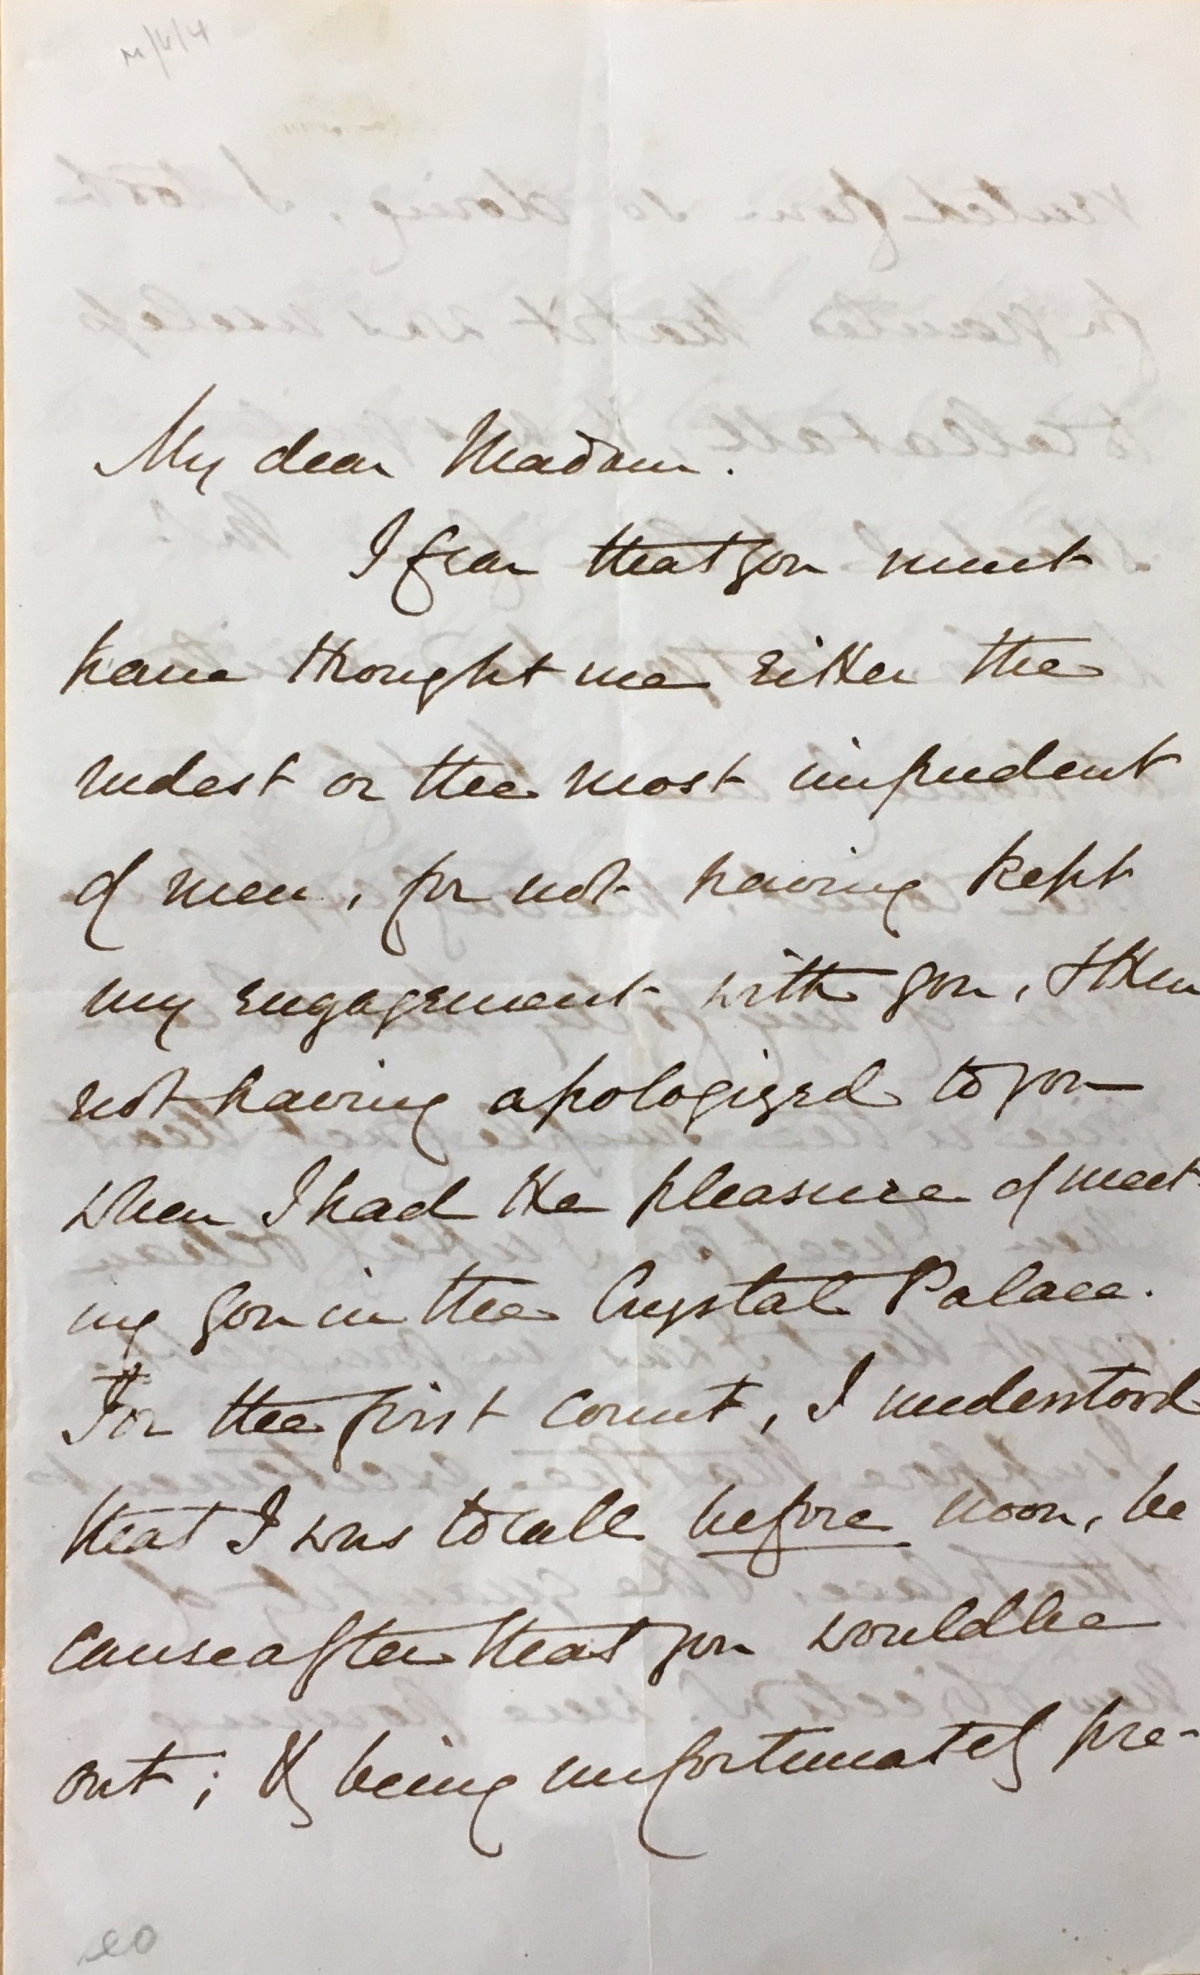 My dear Madam.
I fear that you must
have thought me either the
rudest or the most impudent
of men, for not having kept
my engagement with you, & then
not having apologized to you
when I had the pleasure of meet-
ing you in the Crystal Palace.
For the first count, I understood
that I was to call before noon, be
cause after that you would be
out; & being unfortunately pre-